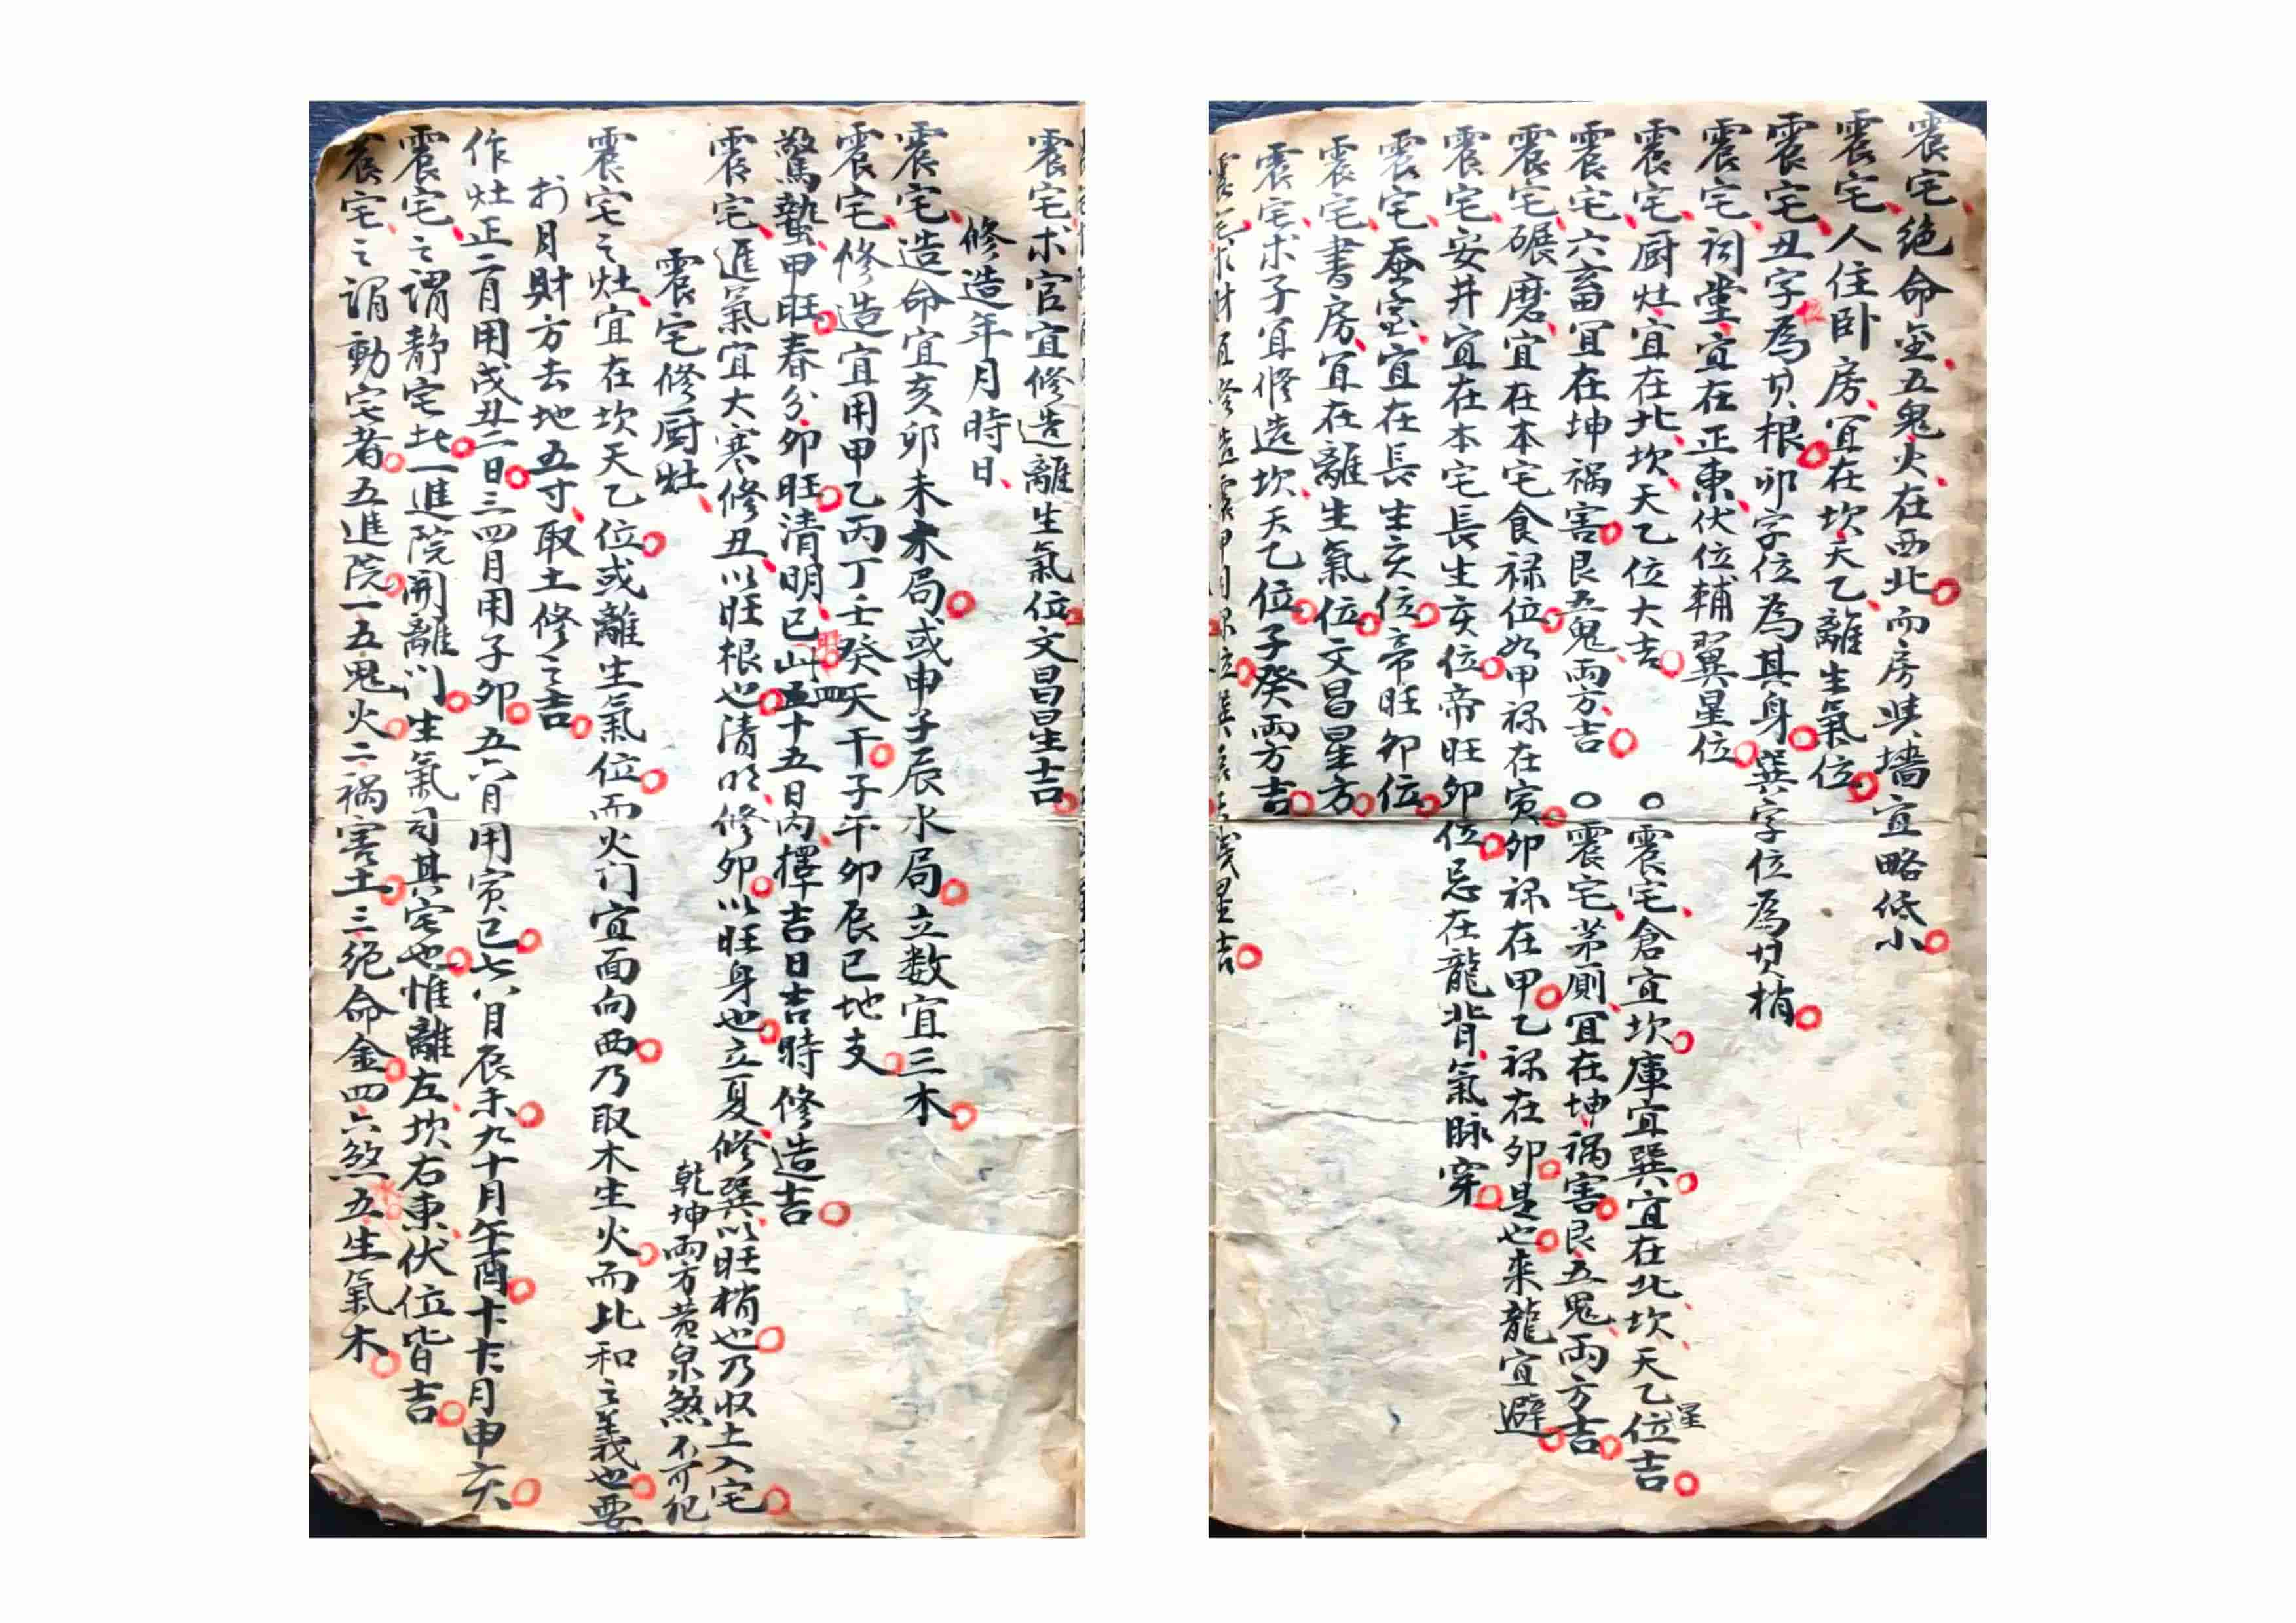 震宅絶命金五鬼火在西北而房與墻宜略低小
震宅人住卧房宜在坎天乙離生氣位
震宅丑字為其根卯字位為其身巽字位為其梢
震宅祠堂宜在正東伏位輔翼星位
震宅厨灶宜在北坎天乙位大吉
○震宅倉宜坎庫宜巽宜在北坎天乙星位吉
震宅六畜宜在坤祸害艮五鬼两方吉
○震宅茅厠宜在坤祸害艮五鬼両方吉
震宅碾磨宜在本宅食禄位如甲禄在寅卯禄在甲乙禄在卯是也来龍宜避
震宅安井宜在本宅長生亥位帝旺卯位忌在龍背氣脉穿
震宅蚕室宜在長生亥位帝旺卯位
震宅書房宜在離生氣位文昌星方
震宅求子宜修造坎天乙位子癸両方吉
震宅求財宜修造震甲
震宅求官宜修造離生氣位文昌星吉
修造年月時日
震宅造命宜亥卯未木局或申子辰水局立数宜三木
震宅修造宜用甲乙丙丁壬癸天干子午卯辰巳地支
驚蟄甲旺春分卯旺清明巳山四五十五日内擇吉日吉時修造吉
震宅進氣宜大寒修丑以旺根也清明修卯以旺身也立夏修巽以旺梢也乃収土入宅
乾坤両方黄泉煞不可犯
震宅修厨灶
震宅之灶宜在坎天乙位或離生氣位而火门宜面向西乃取木生火而比和之義也要
於月財方去地五寸取土修之吉
作灶正二月用戌丑二日三四月用子卯五六月用寅巳七八月辰未九十月午酉十十月申亥
震宅之謂静宅此一進院開離门生氣司其宅也惟離左坎右東伏位皆吉
震宅之謂動宅者五進院一五鬼火二祸害土三絶命金四六煞五生氣木